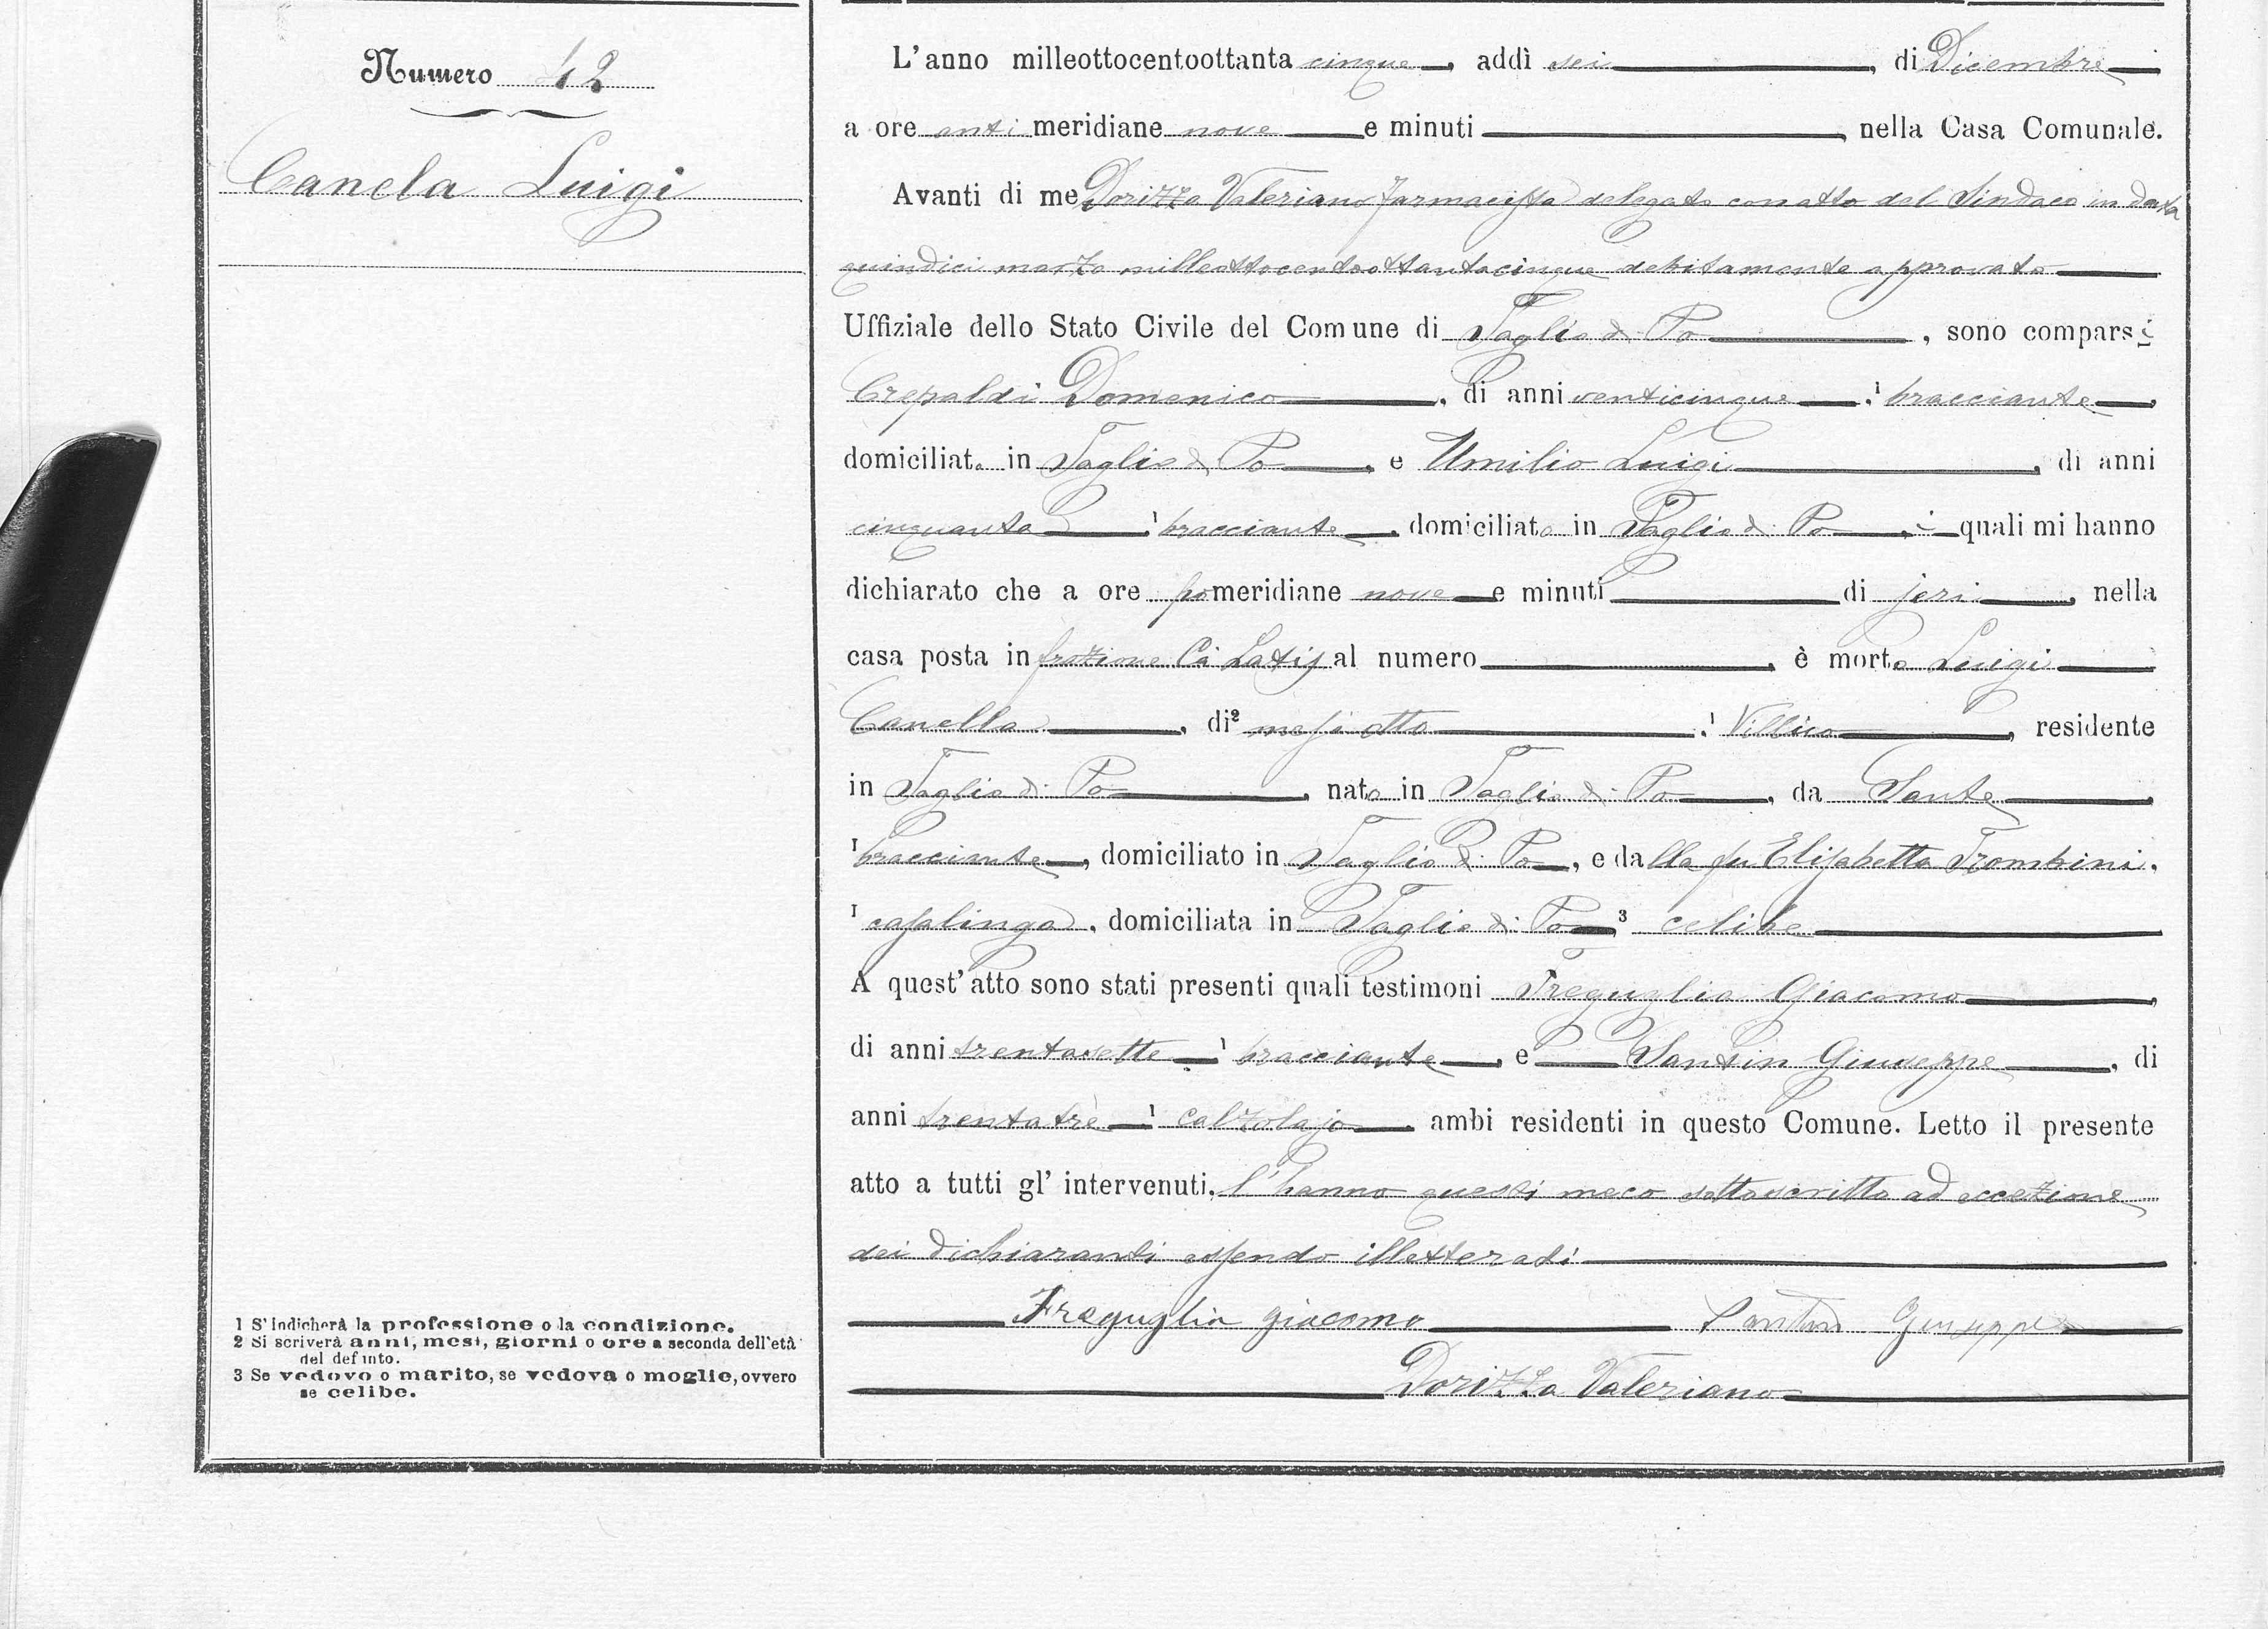 Numero 42
Canela Luigi
L'anno milleottocentoottanta cinque, addì sei, di Dicembre
a ore anti meridiane nove e minuti, nella Casa Comunale.
Avanti di me Dorizza Valeriano farmacista delegato con atto del Sindaco in data
quindici marzo milleottocentoottantacinque debitamente approvato
Uffiziale dello Stato Civile del Comune di Taglio di Po, sono comparsi
Crepaldi Domenico, di anni venticinque, ¹ bracciante,
domiciliato in Taglio di Po, e Umilio Luigi, di anni
cinquanta, ¹ bracciante, domiciliato in Taglio di Po, i quali mi hanno
dichiarato che a ore pomeridiane nove e minuti di jeri, nella
casa posta in frazione Cà Latis al numero, è morto Luigi
Canella, di² mesi otto, ¹ Villico, residente
in Taglio di Po, nato in Taglio di Po, da Sante,
¹ bracciante, domiciliato in Taglio di Po, e dalla fu Elisabetta Trombini,
¹ casalinga, domiciliata in Taglio di Po ³ celibe
A quest'atto sono stati presenti quali testimoni Freguglia Giacomo,
di anni trentasette ¹ bracciante, e Santin Giuseppe, di
anni trentatrè ¹ calzolajo, ambi residenti in questo Comune. Letto il presente
atto a tutti gl' intervenuti, l'hanno questi meco sottoscritto ad eccezione
dei dichiaranti essendo illetterati
Freguglia giacomo Santin Giuseppe
Dorizza Valeriano
1 S'indicherà la professione o la condizione.
2 Si scriverà anni, mesi, giorni o ore a seconda dell'età
del defunto.
3 Se vedovo o marito, se vedova o moglie, ovvero
se celibe.